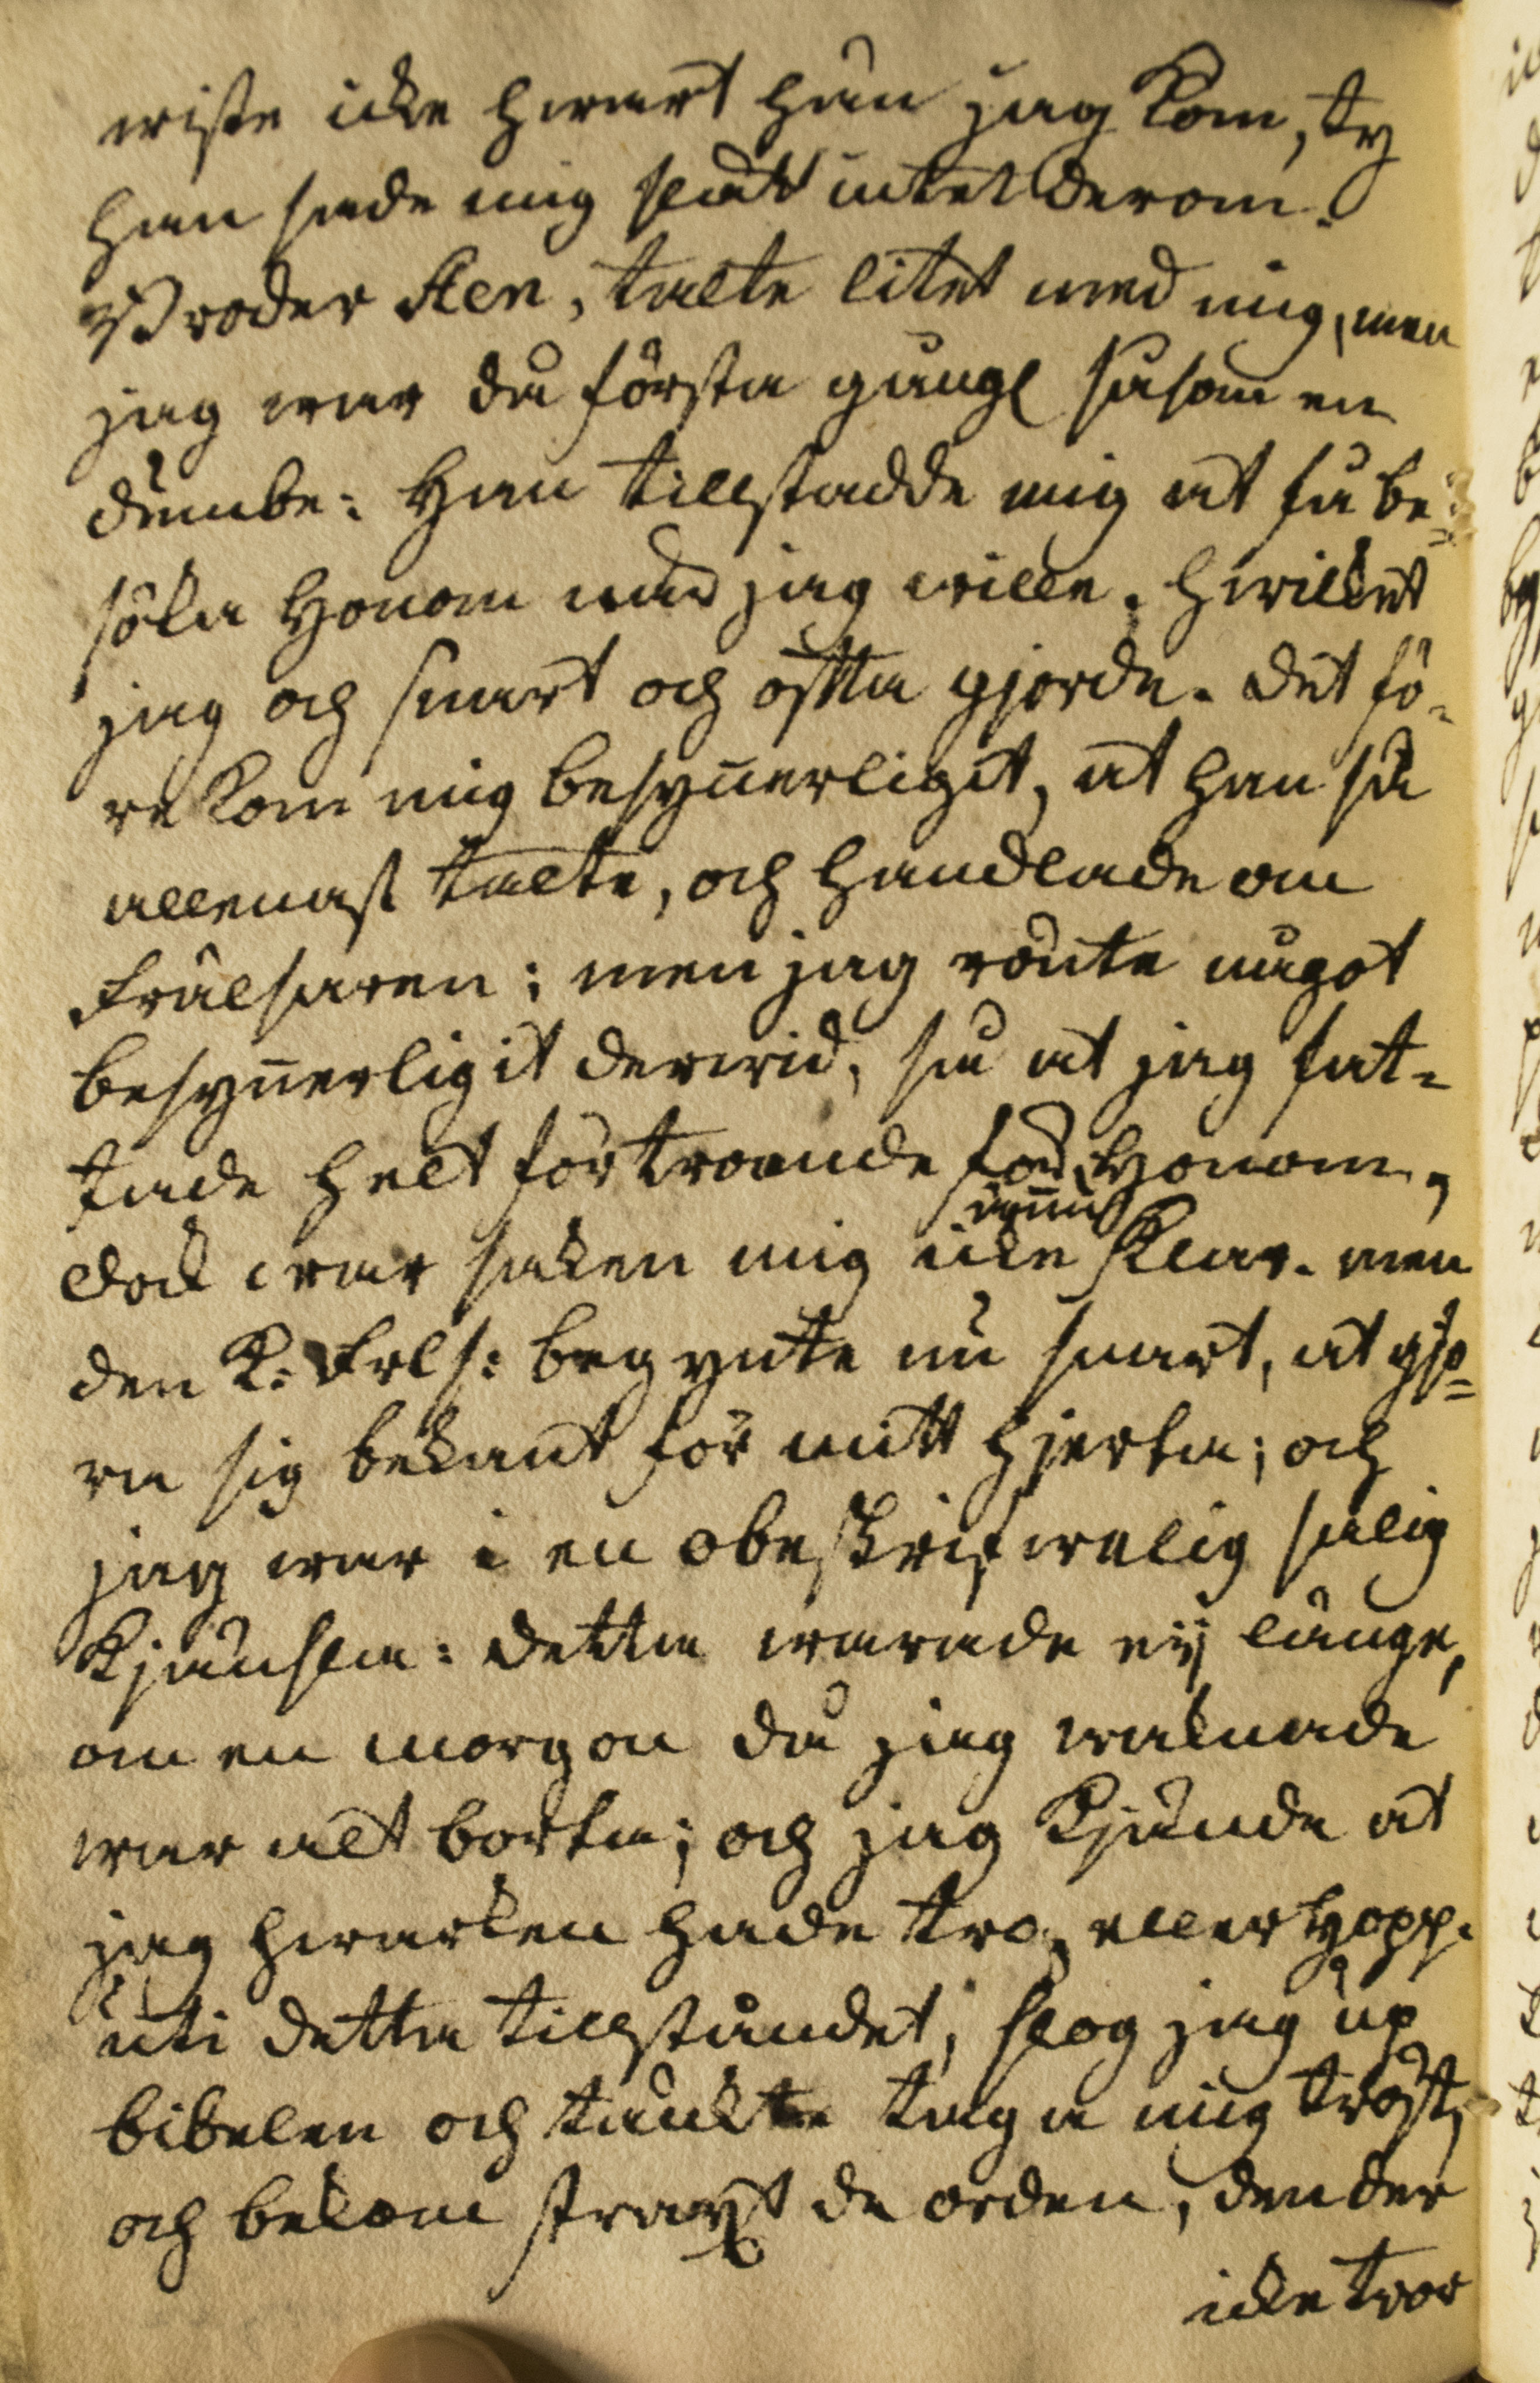 wiste icke hwart hän jag kom, ty
han sade mig slätt intet derom.
Broder Sten, talte litet med mig, men
jag war då första gångl såsom en
dumbe: Han tillstadde mig at få be-
söka Honom när jag wille. hwilket
jag och snart och offta gjorde. Det fö-
re kom mig besynerligit, at han så
allenast talte, och handlade om
Frälsaren; men jag rönte något
besynerligit derwid, så at jag fat-
tade helt förtroende för Honom,
ännu
dock war saken mig icke klar. men
den K: Frls: begynte nu snart, at gjö-
ra sig bekant för mitt hjerta; och
jag war i en obeskrifwelig salig
kjänsla: detta warade eij länge,
om en morgon då jag waknade
war alt borta; och jag kjände at
jag hwarken hade tro, eller Hopp.
uti detta tillståndet, slog jag up
bibelen och tänkte taga mig tröst,
och bekom straxt de orden, den der
icke tror